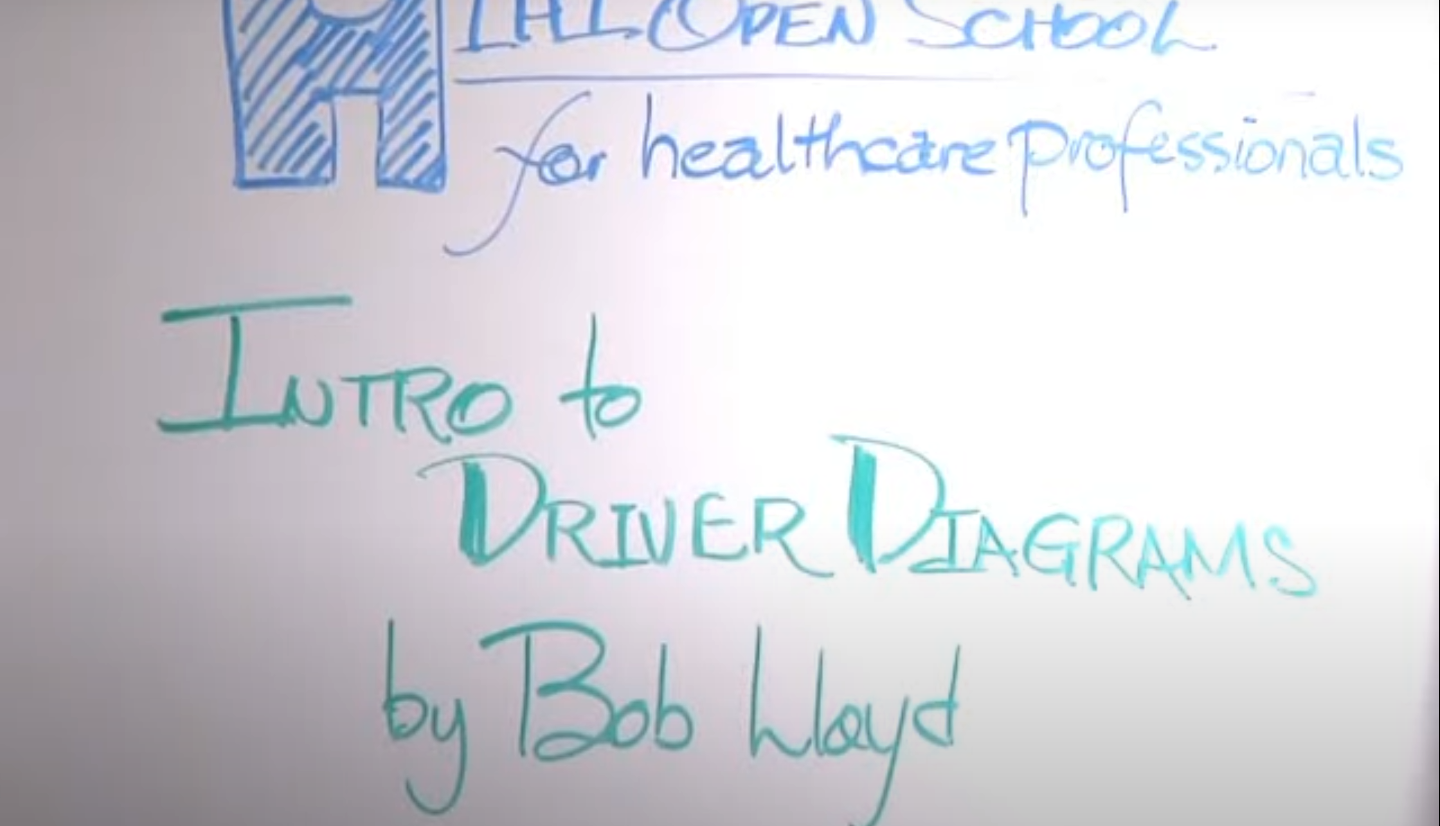 IHI OPEN SCHOOL
for healthcare professionals
INTRO to
DRIVER DIAGRAMS
by Bob Lloyd